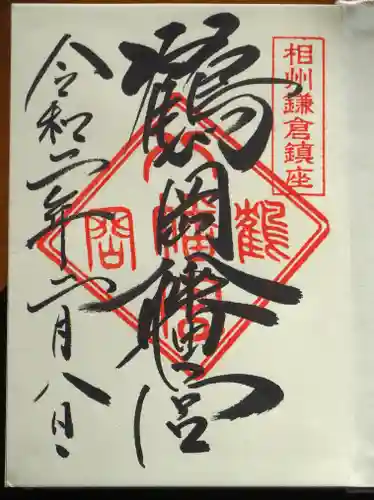 相州鎌倉鎮座
鶴岡八幡宮
令和二年二月八日